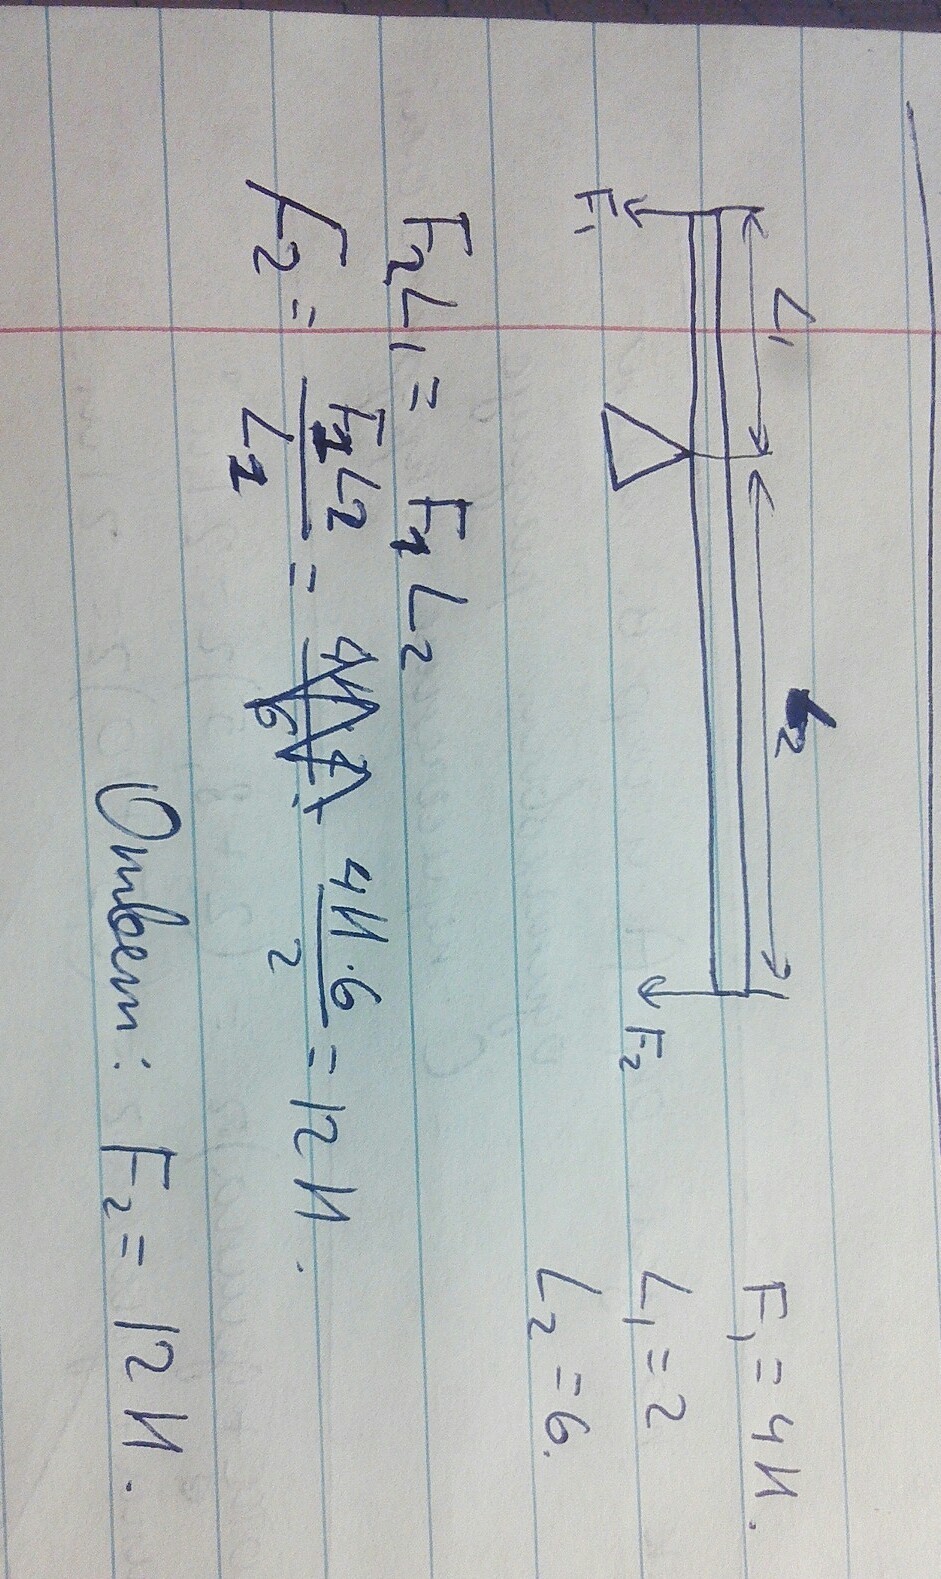 L₁ L₂
F₁ F₂
F₁ = 4Н.
L₁ = 2
L₂ = 6.
F₂L₁ = F₁L₂
F₂ = F₁L₂ / L₁ = 4Н·6 / 2 = 12Н.
Ответ: F₂ = 12Н.